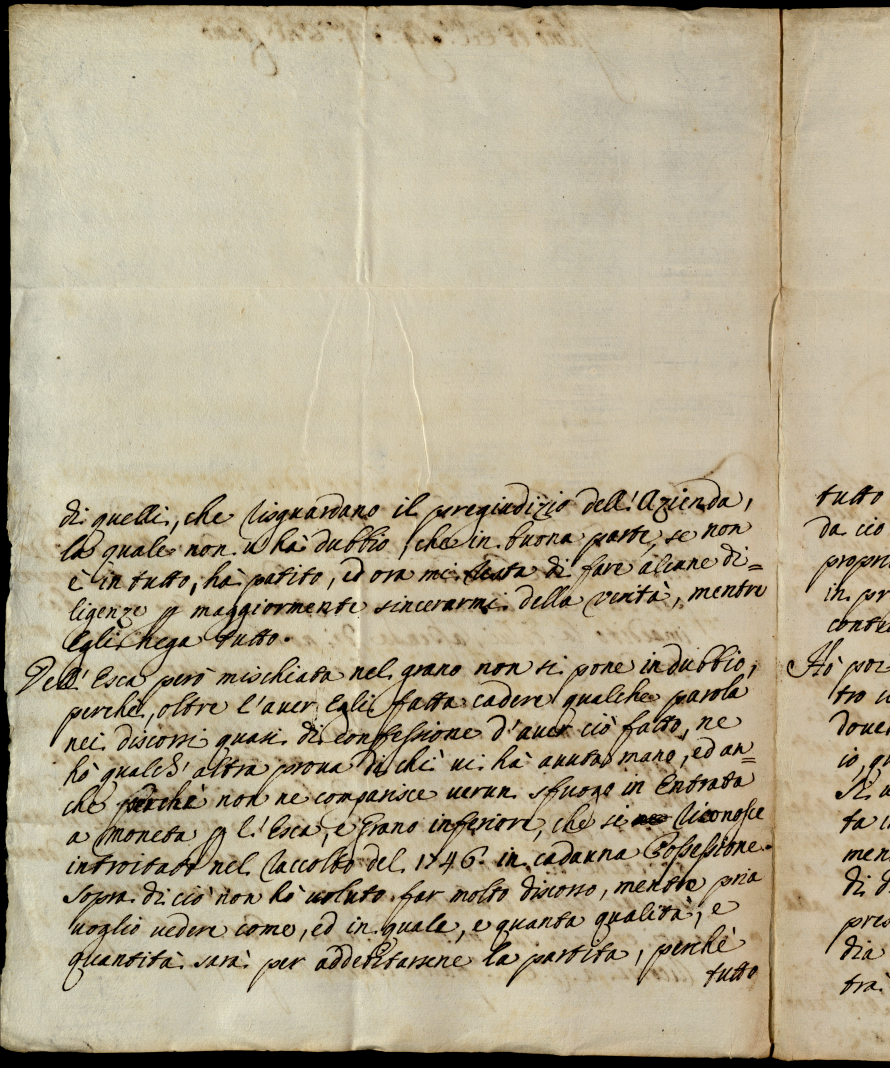 di quelli, che risguardano il pregiudizio dell'Azienda,
la quale non v'hà dubbio, che in buona parte, se non
è in tutto, hà patito, ed ora mi resta di fare alcune di=
ligenze p maggiormente sincerarmi della verità, mentre
Egli nega tutto.
Dell'Esca però mischiata nel grano non si pone in dubbio,
perchè, oltre l'aver Egli fatta cadere qualche parola
nei discorsi quasi di confessione d'aver ciò fatto, ne
hò qualch'altra prova di chi vi hà avuta mano, ed an=
che perchè non ne comparisce verun sfuogo in Entrata
a moneta p l'Esca, e Grano inferiore, che si riconosce
introitato nel raccolto del 1746. in cadauna Possessione.
Sopra di ciò non hò voluto far molto discorso, mentre pria
voglio vedere come, ed in quale, e quanta qualità, e
quantità sarà per addebitarsene la partita, perchè
tutto
tutto
da ciò
propri
in pr
conte
Hò poi
tro
dove
io, qu
ta
men
di d
pres
dia
trà